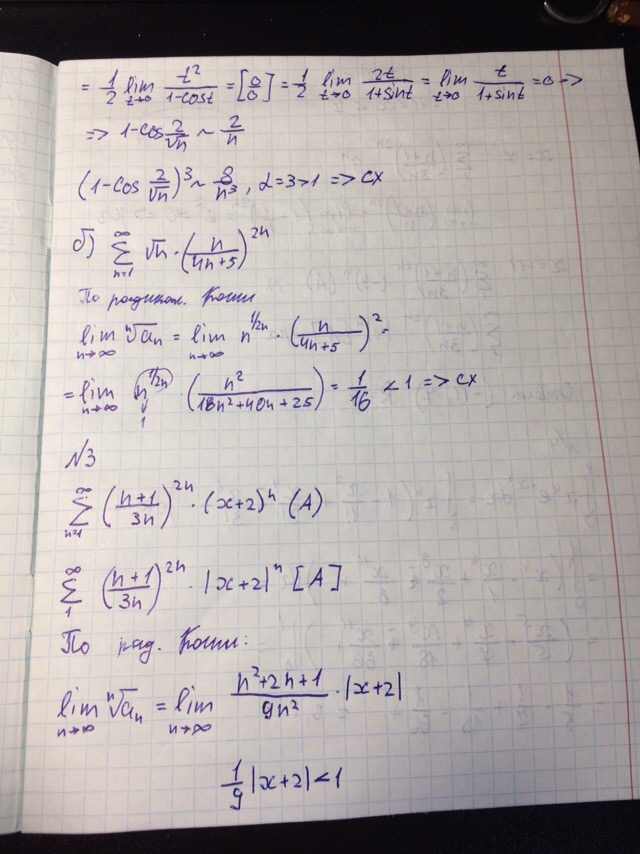 = 1/2 lim t→0 t²/(1-cost) = [0/0] = 1/2 lim t→0 2t/(1+sint) = lim t→0 t/(1+sint) = 0 =>
=> 1-cos 2/√n ~ 2/n
(1-cos 2/√n)³ ~ 8/n³, α=3>1 => сх
б) ∑ n=1 ∞ √n · (n/(4n+5))^2n
По радикал. Коши
lim n→∞ ⁿ√aₙ = lim n→∞ n^1/2n · (n/(4n+5))² =
= lim n→∞ n^1/2n ↓ 1 · (n²/(18n²+40n+25)) = 1/16 < 1 => сх
№3
∑ n=1 ∞ ((n+1)/3n)^2n · (x+2)ⁿ (A)
∑ 1 ∞ ((n+1)/3n)^2n · |x+2|ⁿ [A]
По рад. Коши:
lim n→∞ ⁿ√aₙ = lim n→∞ (n²+2n+1)/9n² · |x+2|
1/9 |x+2| < 1